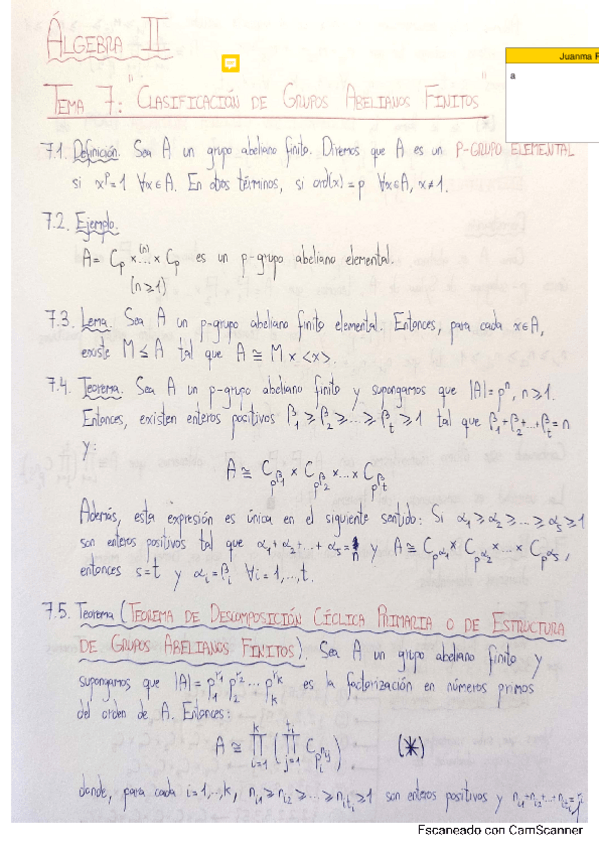 ÁLGEBRA II
Juanma
a
TEMA 7: "CLASIFICACIÓN DE GRUPOS ABELIANOS FINITOS"
7.1. Definición. Sea A un grupo abeliano finito. Diremos que A es un P-GRUPO ELEMENTAL
si x^p=1 ∀x∈A. En otros términos, si ord(x)=p ∀x∈A, x≠1.
7.2. Ejemplo.
A= C_p ×.^(n).× C_p es un p-grupo abeliano elemental.
(n≥1)
7.3. Lema. Sea A un p-grupo abeliano finito elemental. Entonces, para cada x∈A,
existe M≤A tal que A ≅ M × <x>.
7.4. Teorema. Sea A un p-grupo abeliano finito y supongamos que |A|=p^n, n≥1.
Entonces, existen enteros positivos β_1≥β_2≥...≥β_t≥1 tal que β_1+β_2+...+β_t=n
y:
A ≅ C_{p^{β_1}} × C_{p^{β_2}} ×...× C_{p^{β_t}}
Además, esta expresión es única en el siguiente sentido: Si α_1≥α_2≥...≥α_s≥1
son enteros positivos tal que α_1+α_2+...+α_s=n y A≅C_{p^{α_1}}×C_{p^{α_2}}×...×C_{p^{α_s}},
entonces s=t y α_i=β_i ∀i=1,...,t.
7.5. Teorema (TEOREMA DE DESCOMPOSICIÓN CÍCLICA PRIMARIA O DE ESTRUCTURA
DE GRUPOS ABELIANOS FINITOS). Sea A un grupo abeliano finito y
supongamos que |A|=p_1^{r_1} p_2^{r_2}... p_k^{r_k} es la factorización en números primos
del orden de A. Entonces:
A ≅ ∏_{i=1}^{k} (∏_{j=1}^{t_i} C_{p_i^{n_{ij}}}). (*)
donde, para cada i=1,...,k, n_{i1}≥n_{i2}≥...≥n_{it_i}≥1 son enteros positivos y n_{i1}+n_{i2}+...+n_{it_i}=r_i
Escaneado con CamScanner